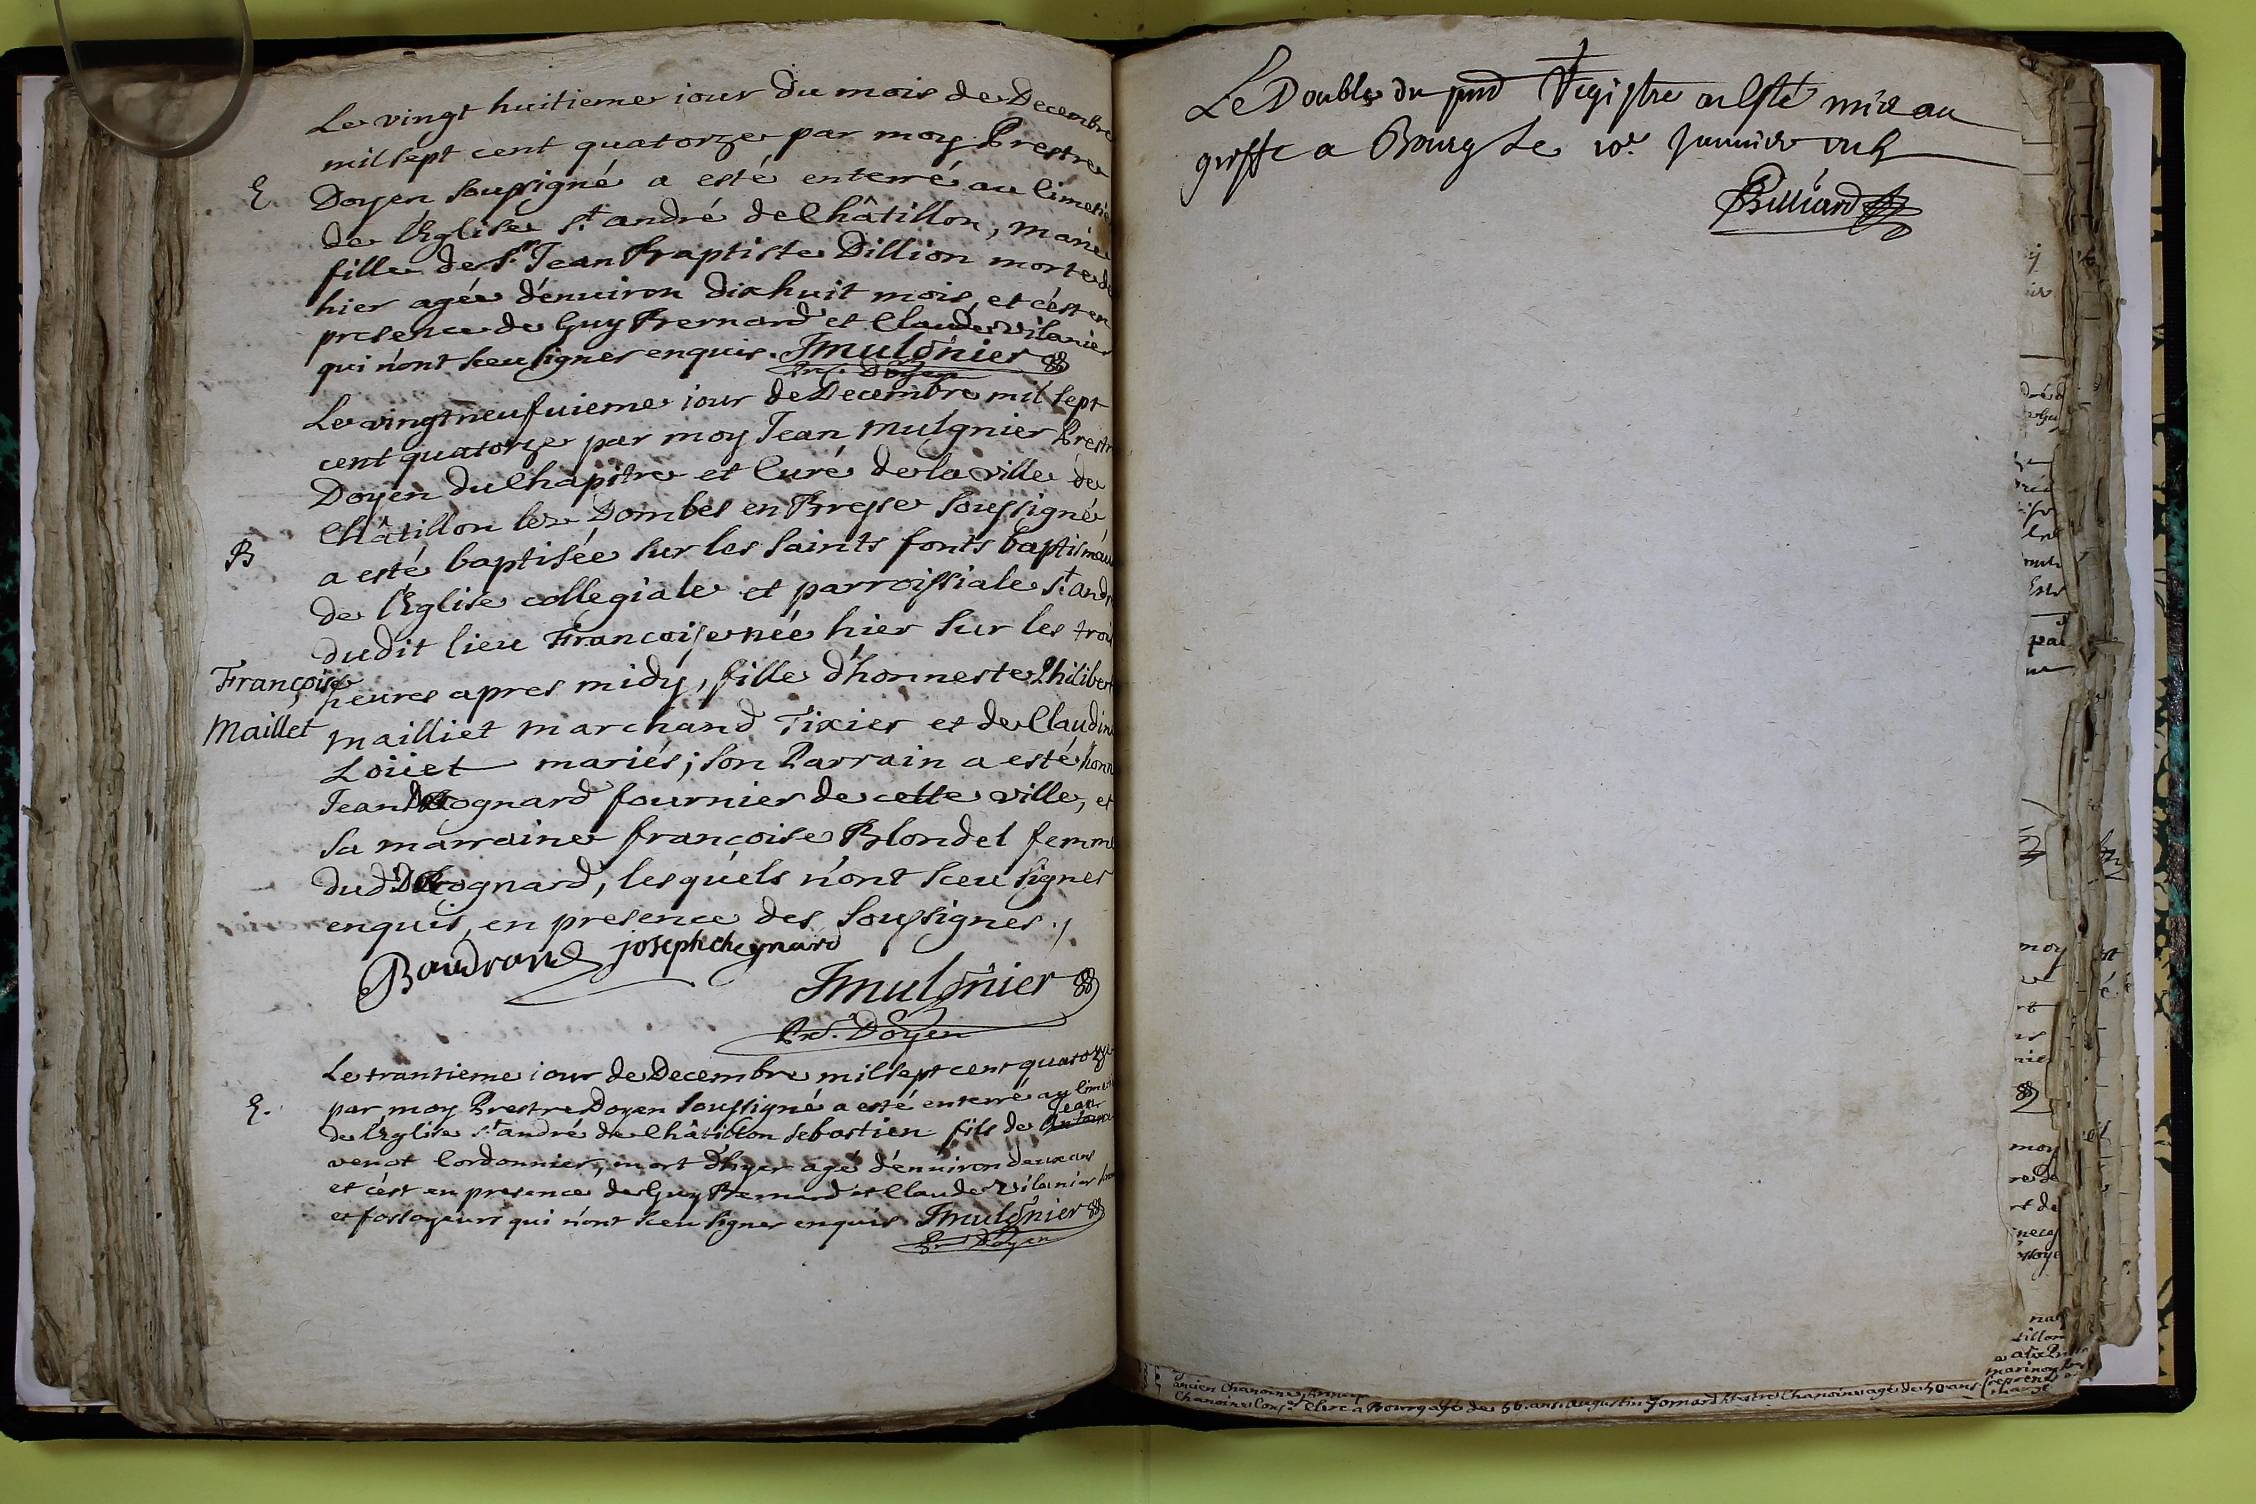 Le vingt huitieme iour du mois de Decembre
mil sept cent quatorze par moy Prestre
E.
Doyen soussigné a esté enterré au Cimetie
de l'Eglise St andré de Châtillon, Marie
fille de Sr Jean Baptiste Dillion morte de
hier agée d'enuiron dixhuit mois, et c'est en
presence de Guy Bernard et Claude Vilanier
qui n'ont sceu signer enquis. JMulgnier
Pre. Doyen
Le vingt neufuieme iour de Decembre mil sept
cent quatorze par moy Jean Mulgnier Prestr
Doyen du Chapitre et Curé de la ville de
Châtillon les Dombes en Bresse soussigné
B
a esté baptisée sur les saints fonts baptismau
de l'Eglise collegiale et parroissiale St. And
dudit lieu Francoise née hier sur les troi
Françoise
heures apres midy, fille d'honneste Philiber
Maillet
Mailliet marchand Tixier et de Claudin
Loüet mariés; son Parrain a esté honn
Jean ognard fournier de cette ville, et
sa marraine françoise Blondel femm
dud ognard, lesquels n'ont sceu signer
enquis, en presence des soussignes ./
Baudrand joseph cheynard
JMulgnier
Pre. Doyen
Le trantieme iour de Decembre mil sept cent quatorze
E.
par moy Prestre Doyen soussigné a esté enterré au Cime
Jean
de l'Eglise St andré de Châtillon Sebastien fils de Antoine
venot Cordonnier, mort d'hyer agé d'enuiron deux ans
et c'est en presence de Guy Bernard et Claude Vilanier
et fossoyeurs qui n'ont sceu signer enquis JMulgnier
Pre Doyen
Le Double du pnt Registre a Esté mis au
greffe a Bourg Le 10e Januier
Billiard
ancien Chanoine
Chanoine Clerc à Bourg agé de 56. ans. augustin Jomard Prestre Chanoine agé de 50 ans